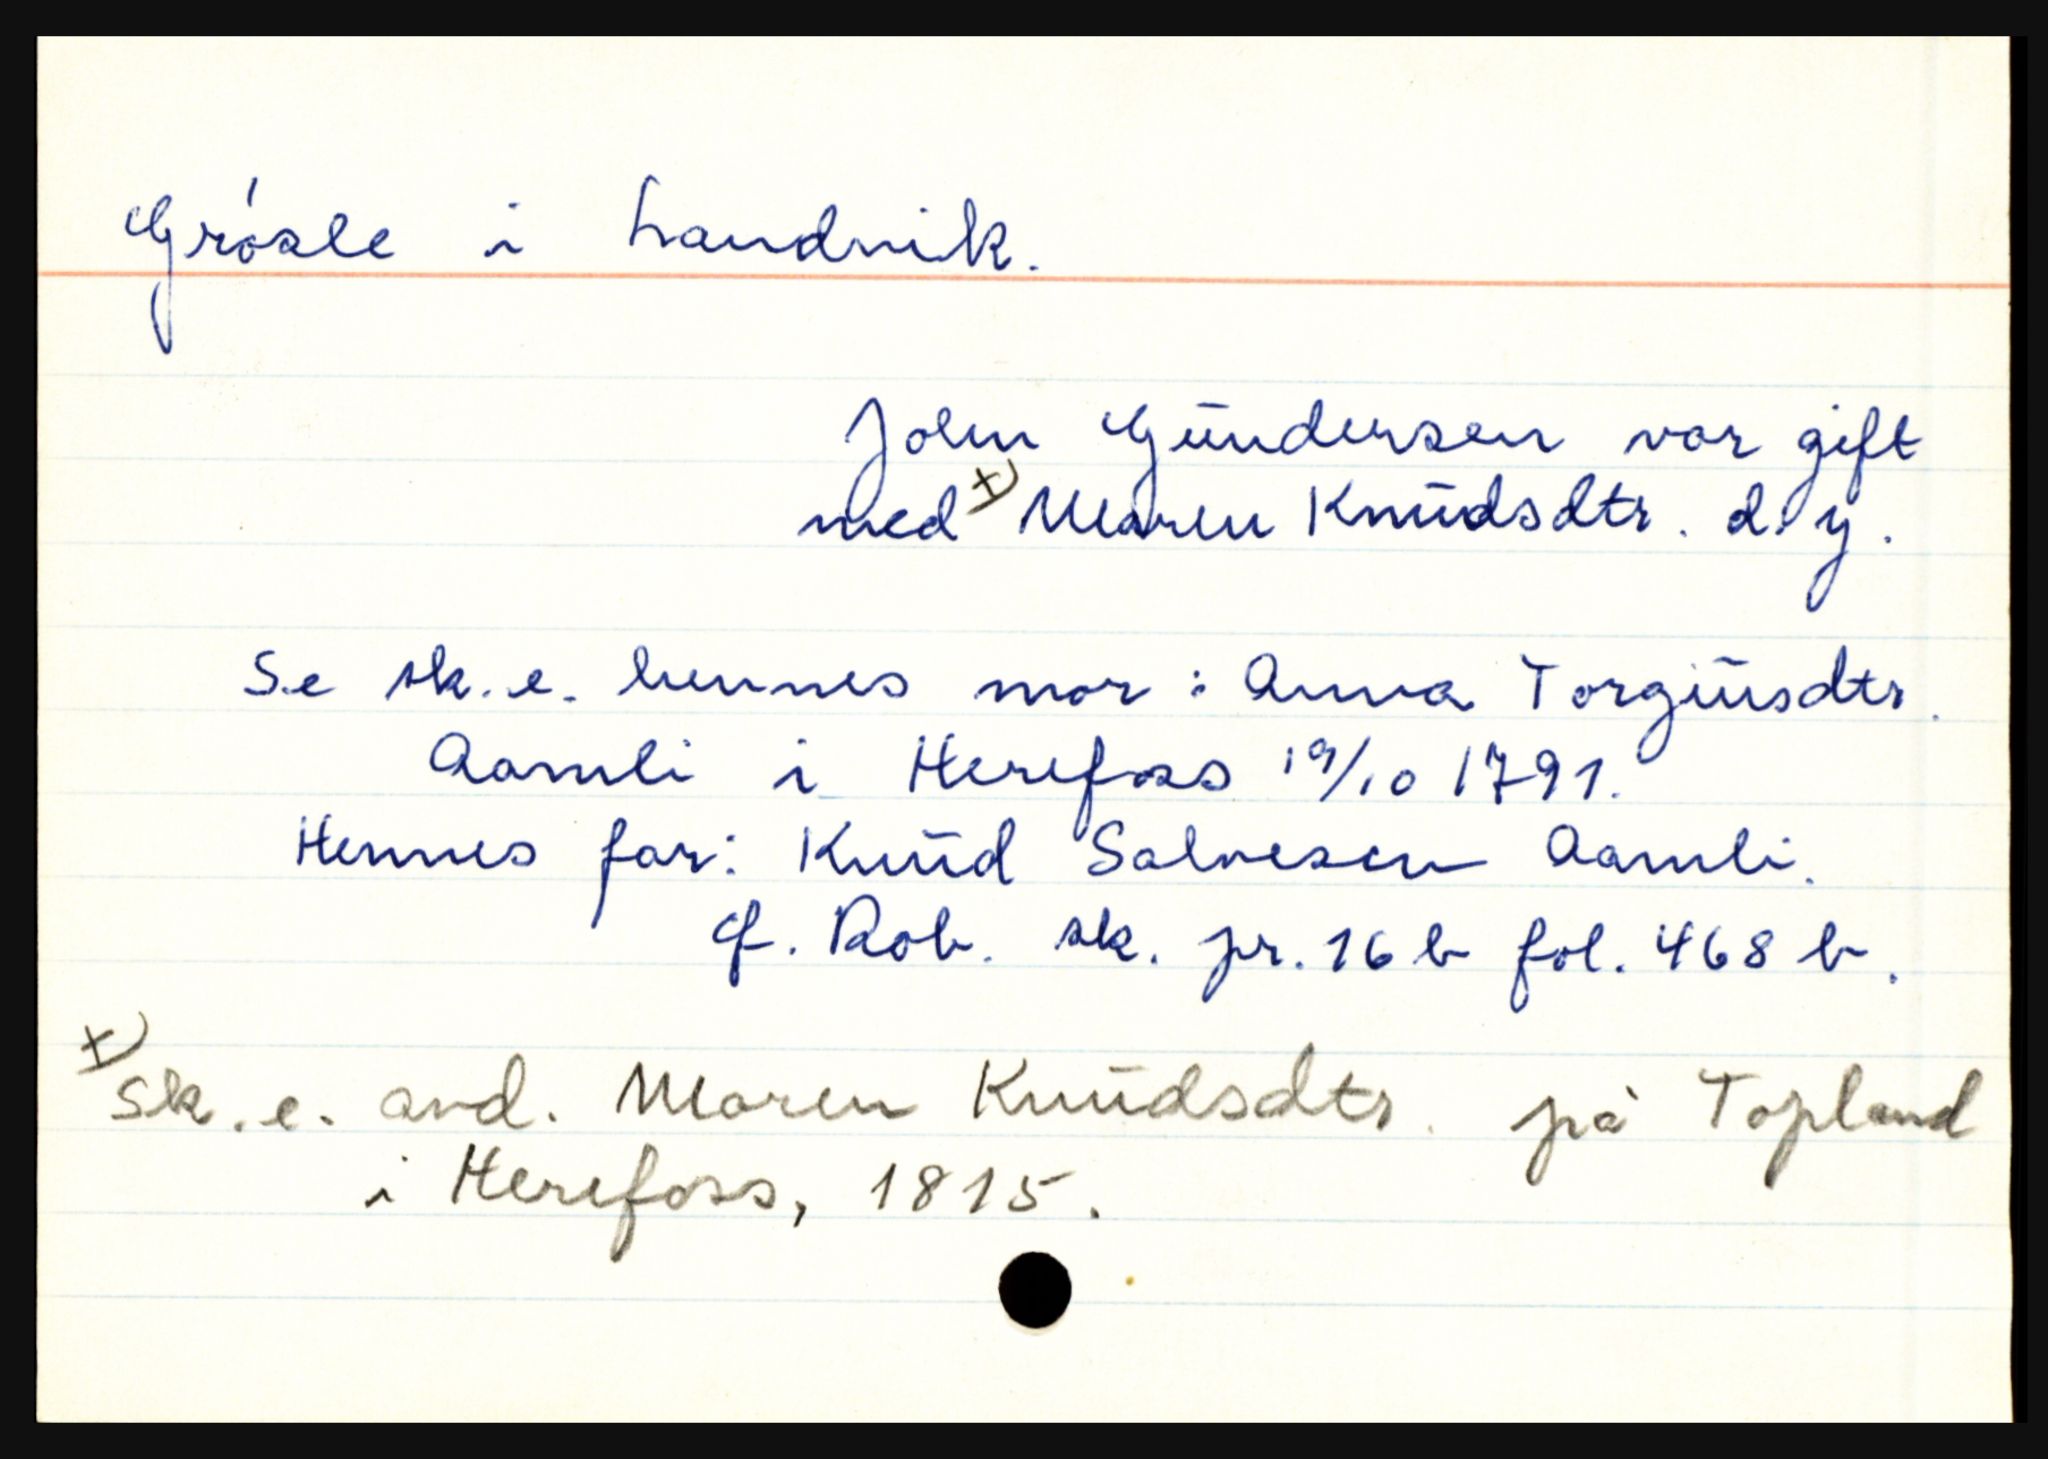 Grósle i Landvik.
John Gundersen var gift
med x) Maren Knudsdtr. d.y.
Se sk.e. hennes mor: Anna Torgusdtr.
Aamli i Herefoss 19/10 1791.
Hennes far: Knud Salvesen Aamli.
cf. Rob. sk. pr. 16 b fol. 468 b.
x) Sk.e. avd. Maren Knudsdtr. på Topland
i Herefoss, 1815.